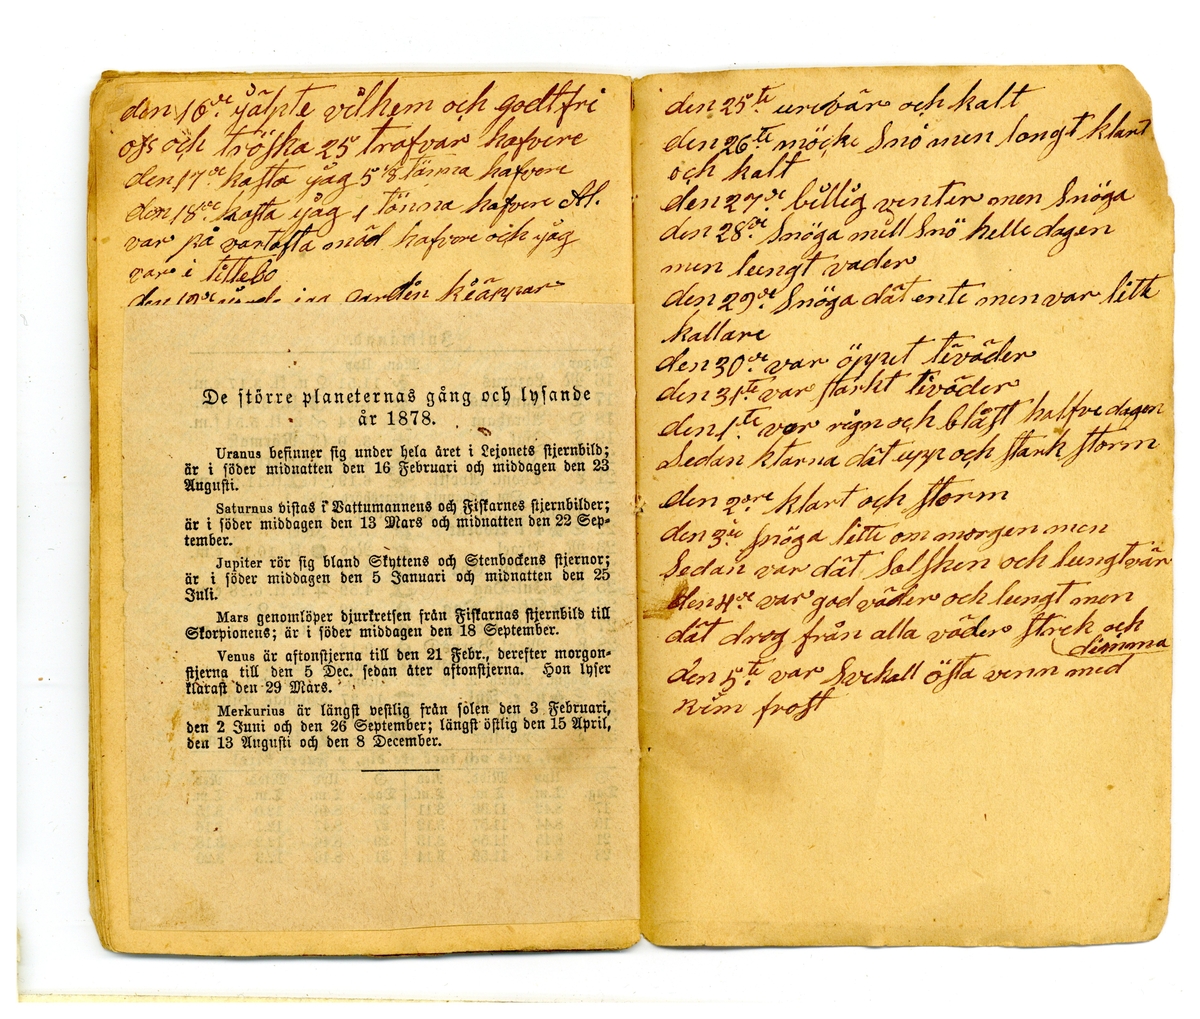 den 16de jälpte vilhem och godtfri
ofs och tröska 25 trafvar hafvere
den 17de kasta jag 5 1/8 tänna hafvere
den 18de kasta jag 1 tönna hafvere Al.
var på vartofta mäd hafvere och jag
var i Tittebo
den 19de jag gardin käppar
De större planeternas gång och lysande
år 1878.
Uranus befinner sig under hela året i Lejonets stjernbild;
är i söder midnatten den 16 Februari och middagen den 23
Augusti.
Saturnus vistas i Vattumannens och Fiskarnes stjernbilder;
är i söder middagen den 13 Mars och midnatten den 22 Sep-
tember.
Jupiter rör sig bland Skyttens och Stenbockens stjernor;
är i söder middagen den 5 Januari och midnatten den 25
Juli.
Mars genomlöper djurkretsen från Fiskarnas stjernbild till
Skorpionens; är i söder middagen den 18 September.
Venus är aftonstjerna till den 21 Febr., derefter morgon-
stjerna till den 5 Dec. sedan åter aftonstjerna. Hon lyser
klarast den 29 Mars.
Merkurius är längst vestlig från solen den 3 Februari,
den 2 Juni och den 26 September; längst östlig den 15 April,
den 13 Augusti och den 8 December.
den 25te urevär och kalt
den 26te möcke Snö men longt klart
och kalt
den 27de billig venter men Snöga
den 28de Snöga mull Snö helle dagen
men lungt väder
den 29de Snöga dät ente men var litte
kallare
den 30de var öppet töväder
den 31te var starkt töväder
den 1te var regn och blåst halfve dagen
Sedan klarna dät upp och stark storm
den 2dre klart och storm
den 3je snöga litte om morgen men
Sedan var dät Solsken och lungt vär
den 4de var god väder och lungt men
dät drog från alla väder strek och
dimma
den 5te var Svekall östa venn med
Rim frost